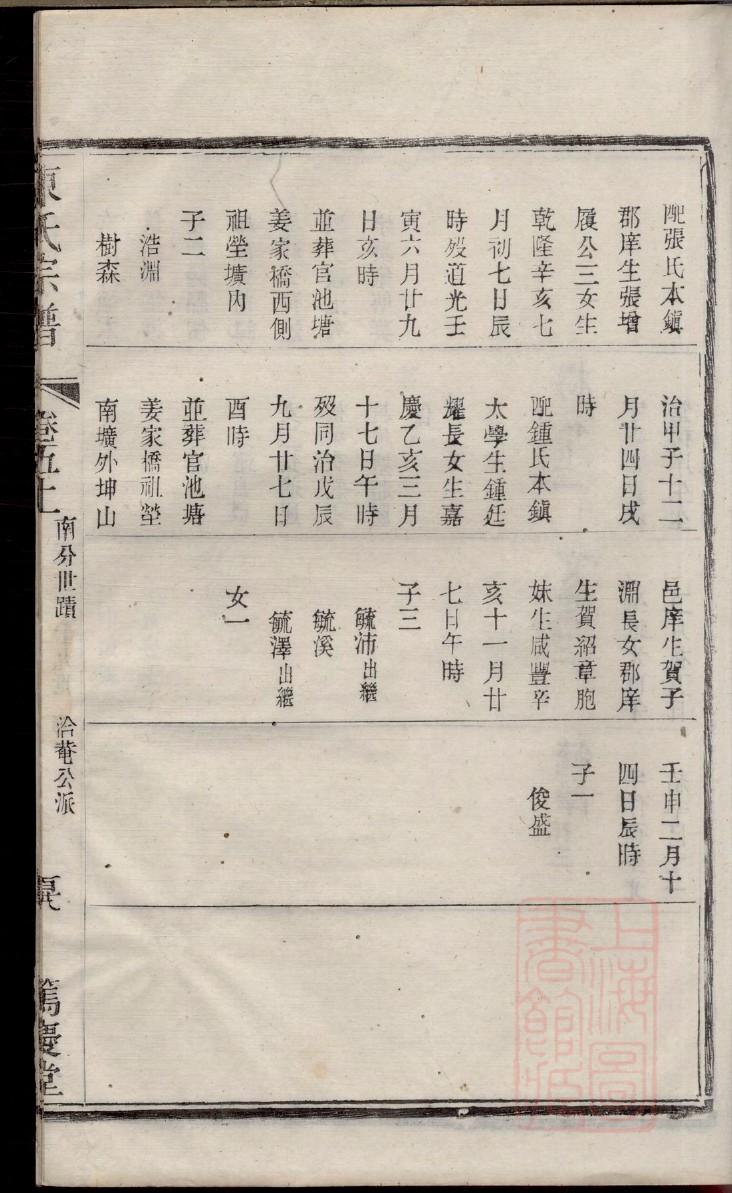 配張氏本鎮
郡庠生張增
履公三女生
乾隆辛亥七
月初七日辰
時歿道光壬
寅六月廿九
日亥時
並葬官池塘
姜家橋西側
祖塋壙內
子二
浩淵
樹森
治甲子十二
月廿四日戌
時
配鍾氏本鎮
太學生鍾廷
耀長女生嘉
慶乙亥三月
十七日午時
歿同治戊辰
九月廿七日
酉時
並葬官池塘
姜家橋祖塋
南壙外坤山
邑庠生賀子
淵長女郡庠
生賀紹章胞
妹生咸豐辛
亥十一月廿
七日午時
子三
毓沛出繼
毓溪
毓澤出繼
女一
壬申二月十
四日辰時
子一
俊盛
氏宗譜
卷五十
南分世蹟
洽菴公派
篤慶堂
上海圖書館藏